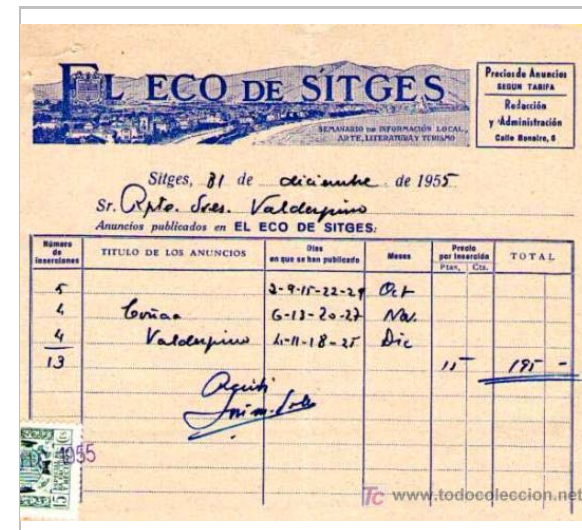 EL ECO DE SITGES
SEMANARIO DE INFORMACIÓN LOCAL,
ARTE, LITERATURA Y TURISMO
Precios de Anuncios
SEGUN TARIFA
Redacción
y Administración
Calle Bonaire, 8
Sitges, 31 de diciembre de 1955
Sr. Rpto. Sres. Valdespino
Anuncios publicados en EL ECO DE SITGES:
Número de inserciones TITULO DE LOS ANUNCIOS Días en que se han publicado Meses Precio por inserción Ptas. Cts. TOTAL
5 2-9-15-22-29 Oct
4 Coñac 6-13-20-27 Nov.
4 Valdespino 4-11-18-25 Dic
13 15 195 -
Recibí
1955
5
www.todocoleccion.net